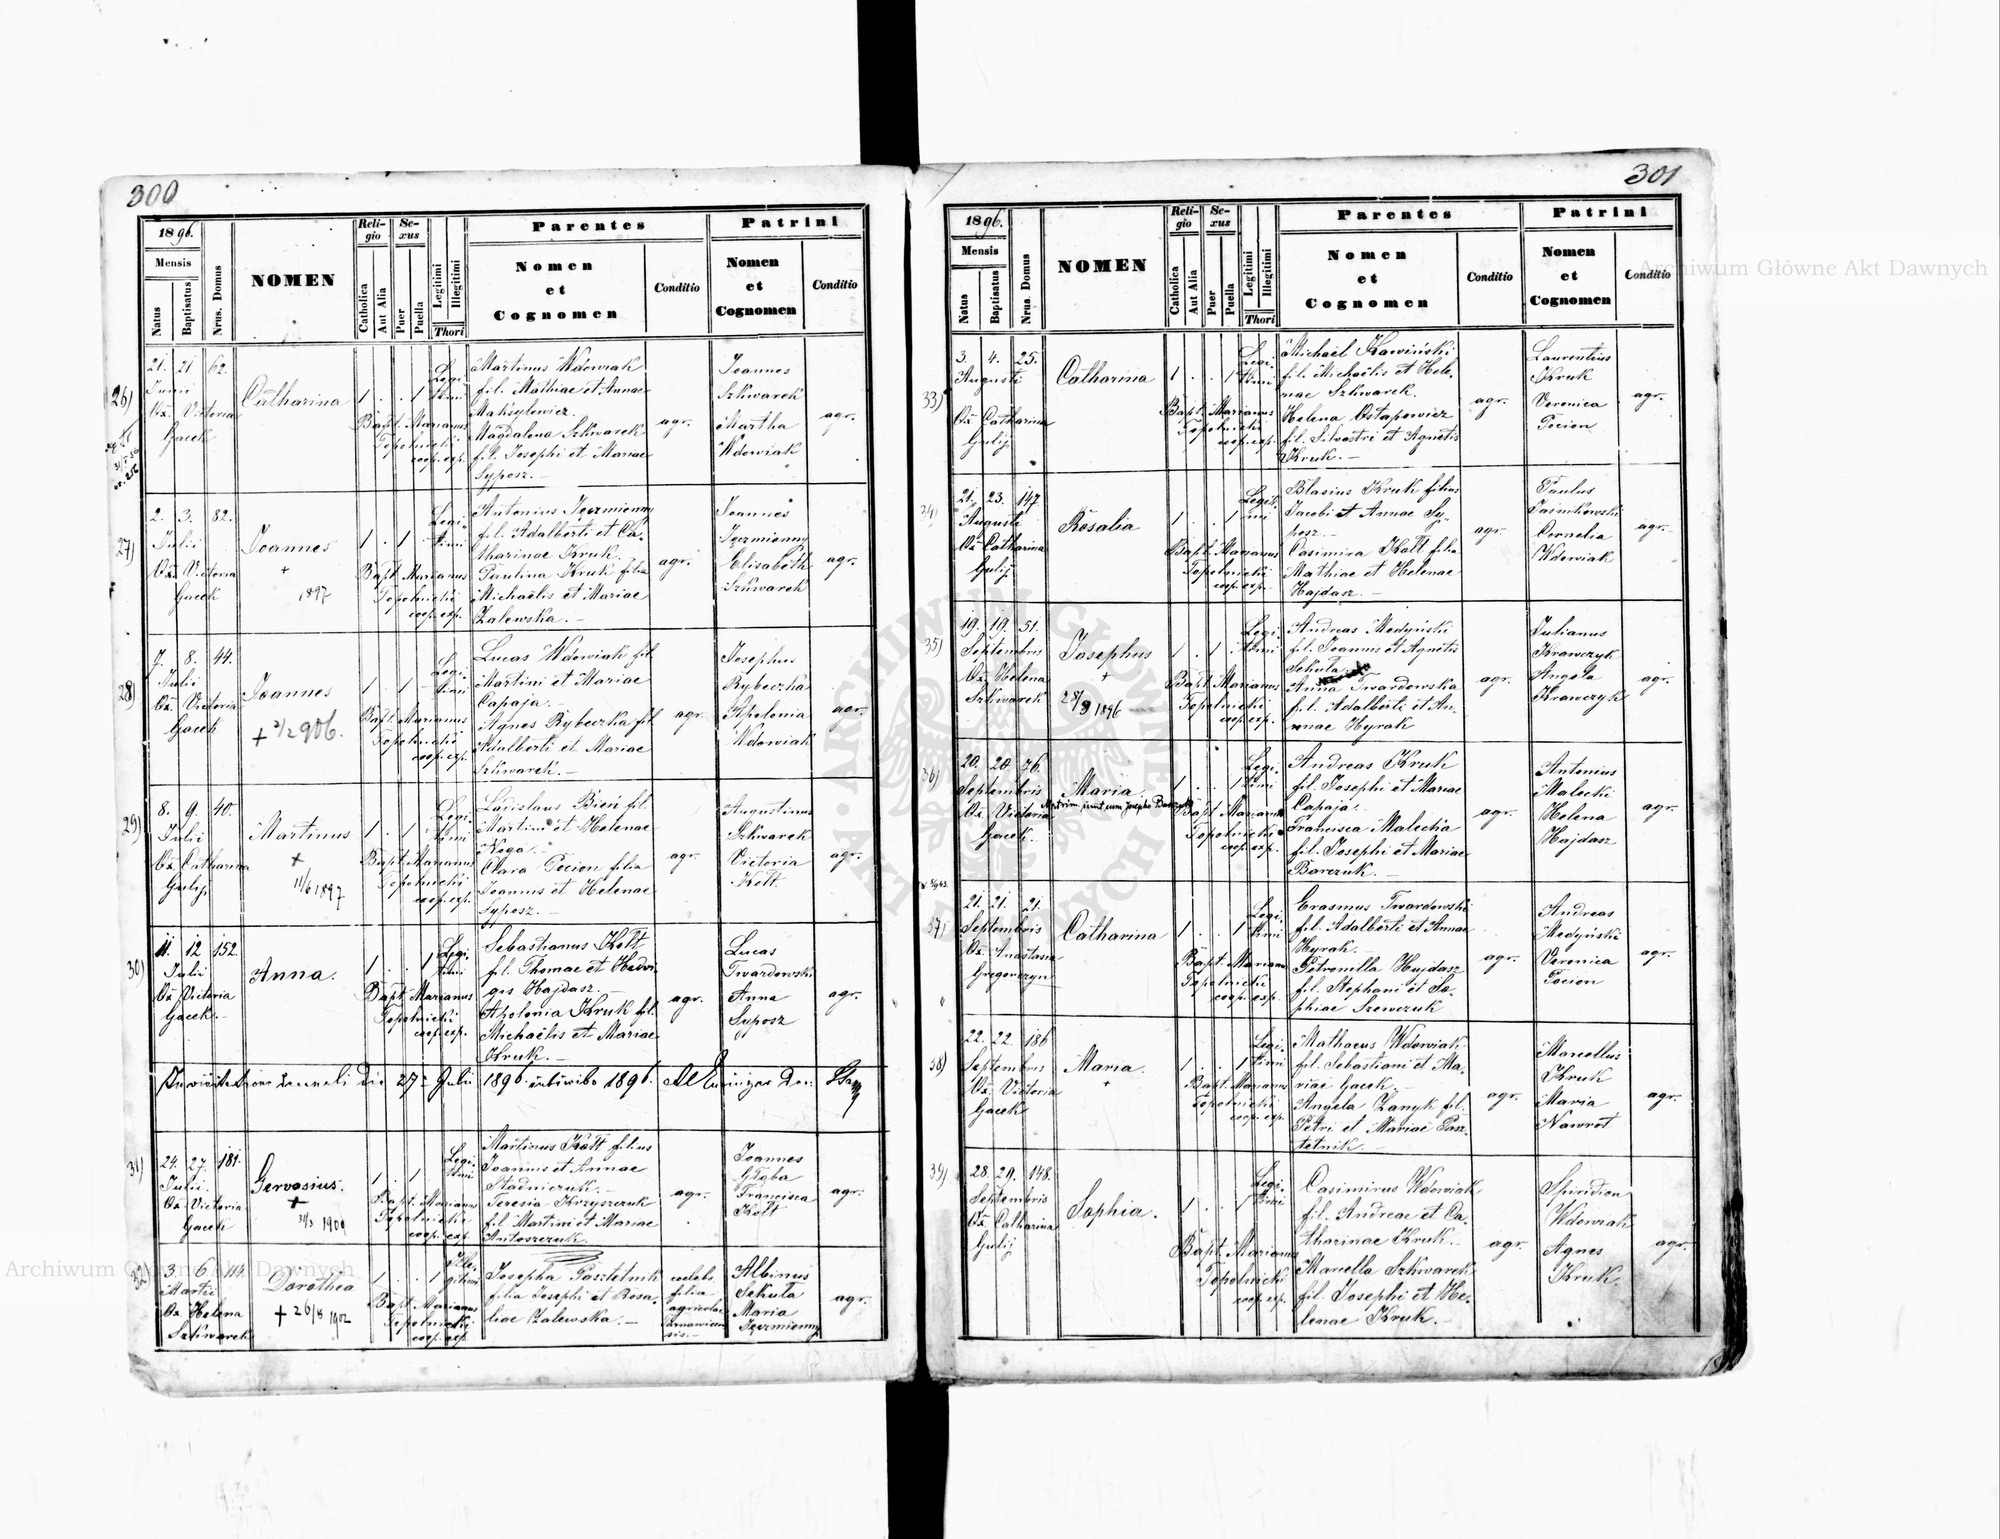 300
1896.
Mensis
Natus
Baptisatus
Nrus. Domus
NOMEN
Religio
Catholica
Aut Alia
Sexus
Puer
Puella
Legitimi
Illegitimi
Thori
Parentes
Nomen
et
Cognomen
Conditio
Patrini
Nomen
et
Cognomen
Conditio
26)
21. 21 62.
Junii
Ox. Victoria
Gacek
Catharina
1 . . 1
Legi-
timi
Bapt. Marianus
Topolnicki
coop. exp.
Martinus Wdowiak
fil. Mathiae et Annae
Maksylewicz.
Magdalena Szkwarek
fil. Josephi et Mariae
Syposz. —
agr.
Joannes
Szkwarek
Martha
Wdowiak
agr.
27)
2. 3. 82.
Julii
Ox. Victoria
Gacek
Joannes
+
1897
1 . 1
Legi-
timi
Bapt. Marianus
Topolnicki
coop. exp.
Antonius Jęczmienny
fil. Adalberti et Ca-
tharinae Kruk.
Paulina Kruk filia
Michaëlis et Mariae
Zalewska. —
agr.
Joannes
Jęczmienny
Elisabeth
Szkwarek
agr.
28)
7. 8. 44.
Julii
Ox. Victoria
Gacek
Joannes
+ 2/2 906.
1 . 1
Legi-
timi
Bapt. Marianus
Topolnicki
coop. exp.
Lucas Wdowiak fil.
Martini et Mariae
Capaja.
Agnes Rybeczka fil.
Adalberti et Mariae
Szkwarek. —
agr.
Josephus
Rybeczka
Apolonia
Wdowiak
agr.
29)
8. 9. 40.
Julii
Ox. Catharina
Gulij
Martinus
+
11/6 1897
1 . 1
Legi-
timi
Bapt. Marianus
Topolnicki
coop. exp.
Ladislaus Bień fil.
Martini et Helenae
Noga.
Clara Pocion filia
Joannis et Helenae
Syposz. —
agr.
Augustinus
Szkwarek
Victoria
Kott.
agr.
30)
11. 12 152.
Julii
Ox. Victoria
Gacek. —
Anna.
1 . . 1
Legi-
timi
Bapt. Marianus
Topolnicki
coop. exp.
Sebastianus Kott
fil. Thomae et Hedvi-
gis Hajdasz. —
Apolonia Kruk fil.
Michaëlis et Mariae
Kruk. —
agr.
Lucas
Twardowski
Anna
Syposz
agr.
die 27 Julii 1896. 1896.
31)
24. 27. 181.
Julii
Ox. Victoria
Gacek
Gervasius.
+
31/3 1900
1 . 1
Legi-
timi
Bapt. Marianus
Topolnicki
coop. exp.
Martinus Kott filius
Joannis et Annae
Stadniczuk. —
Teresia Krzyszczuk
fil. Martini et Mariae
Antoszczuk. —
agr.
Joannes
Głąba
Francisca
Kott
agr.
32)
3. 6. 114.
Martii
Ox. Helena
Szkwarek
Dorothea
+ 26/8 1902
1 . . 1
Ille-
gitimi
Bapt. Marianus
Topolnicki
coop. exp.
Josepha Pasztetnik
filia Josephi et Rosa-
liae Zalewska. —
coelebs
filia
agricolae
Albinus
Sekuła
Maria
Jęczmienny
agr.
301
1896.
Mensis
Natus
Baptisatus
Nrus. Domus
NOMEN
Religio
Catholica
Aut Alia
Sexus
Puer
Puella
Legitimi
Illegitimi
Thori
Parentes
Nomen
et
Cognomen
Conditio
Patrini
Nomen
et
Cognomen
Conditio
33)
3. 4. 25.
Augusti
Ox. Catharina
Gulij
Catharina
1 . . 1
Legi-
timi
Bapt. Marianus
Topolnicki
coop. exp.
Michaël Kawiński
fil. Michaëlis et Hele-
nae Szkwarek.
Helena Ostapowicz
fil. Silvestri et Agnetis
Kruk. —
agr.
Laurentius
Kruk
Veronica
Pocion
agr.
34)
21. 23. 147.
Augusti
Ox. Catharina
Gulij
Rosalia
1 . . 1
Legit-
imi
Bapt. Marianus
Topolnicki
coop. exp.
Blasius Kruk filius
Jacobi et Annae Sy-
posz. —
Casimira Kott filia
Mathiae et Helenae
Hajdasz. —
agr.
Paulus
Jasinkowski
Cornelia
Wdowiak
agr.
35)
19. 19. 51.
Septembris
Ox. Helena
Szkwarek
Josephus
+
28/9 1896
1 . 1
Legi-
timi
Bapt. Marianus
Topolnicki
coop. exp.
Andreas Medyński
fil. Joannis et Agnetis
Sekuła.
Anna Twardowska
fil. Adalberti et An-
nae Hyrak
agr.
Julianus
Krawczyk
Angela
Krawczyk
agr.
36)
20. 20 76.
Septembris
Ox. Victoria
Gacek.
Maria
1 . . 1
Legi-
timi
Bapt. Marianus
Topolnicki
coop. exp.
Andreas Kruk
fil. Josephi et Mariae
Capaja. —
Francisca Malecka
fil. Josephi et Mariae
Barczuk. —
agr.
Antonius
Malecki
Helena
Hajdasz
agr.
37)
21. 21. 21.
Septembris
Ox. Anastasia
Gregorczyn
Catharina
1 . . 1
Legi-
timi
Bapt. Marianus
Topolnicki
coop. exp.
Erasmus Twardowski
fil. Adalberti et Annae
Hyrak. —
Petronilla Hajdasz
fil. Stephani et So-
phiae Szewczuk
agr.
Andreas
Medyński
Veronica
Pocion
agr.
38)
22. 22. 186
Septembris
Ox. Victoria
Gacek
Maria.
+
1 . . 1
Legi-
timi
Bapt. Marianus
Topolnicki
coop. exp.
Mathaeus Wdowiak
fil. Sebastiani et Ma-
riae Gacek. —
Angela Zanyk fil.
Petri et Mariae Pasz-
tetnik. —
agr.
Marcellus
Kruk
Maria
Nawrot
agr.
39)
28. 29. 148.
Septembris
Ox. Catharina
Gulij
Sophia.
1 . . 1
Legi-
timi
Bapt. Marianus
Topolnicki
coop. exp.
Casimirus Wdowiak
fil. Andreae et Ca-
tharinae Kruk. —
Marcella Szkwarek
fil. Josephi et He-
lenae Kruk. —
agr.
Spiridion
Wdowiak
Agnes
Kruk.
agr.
Archiwum Główne Akt Dawnych
Archiwum Główne Akt Dawnych
ARCHIWUM GŁÓWNE AKT DAWNYCH